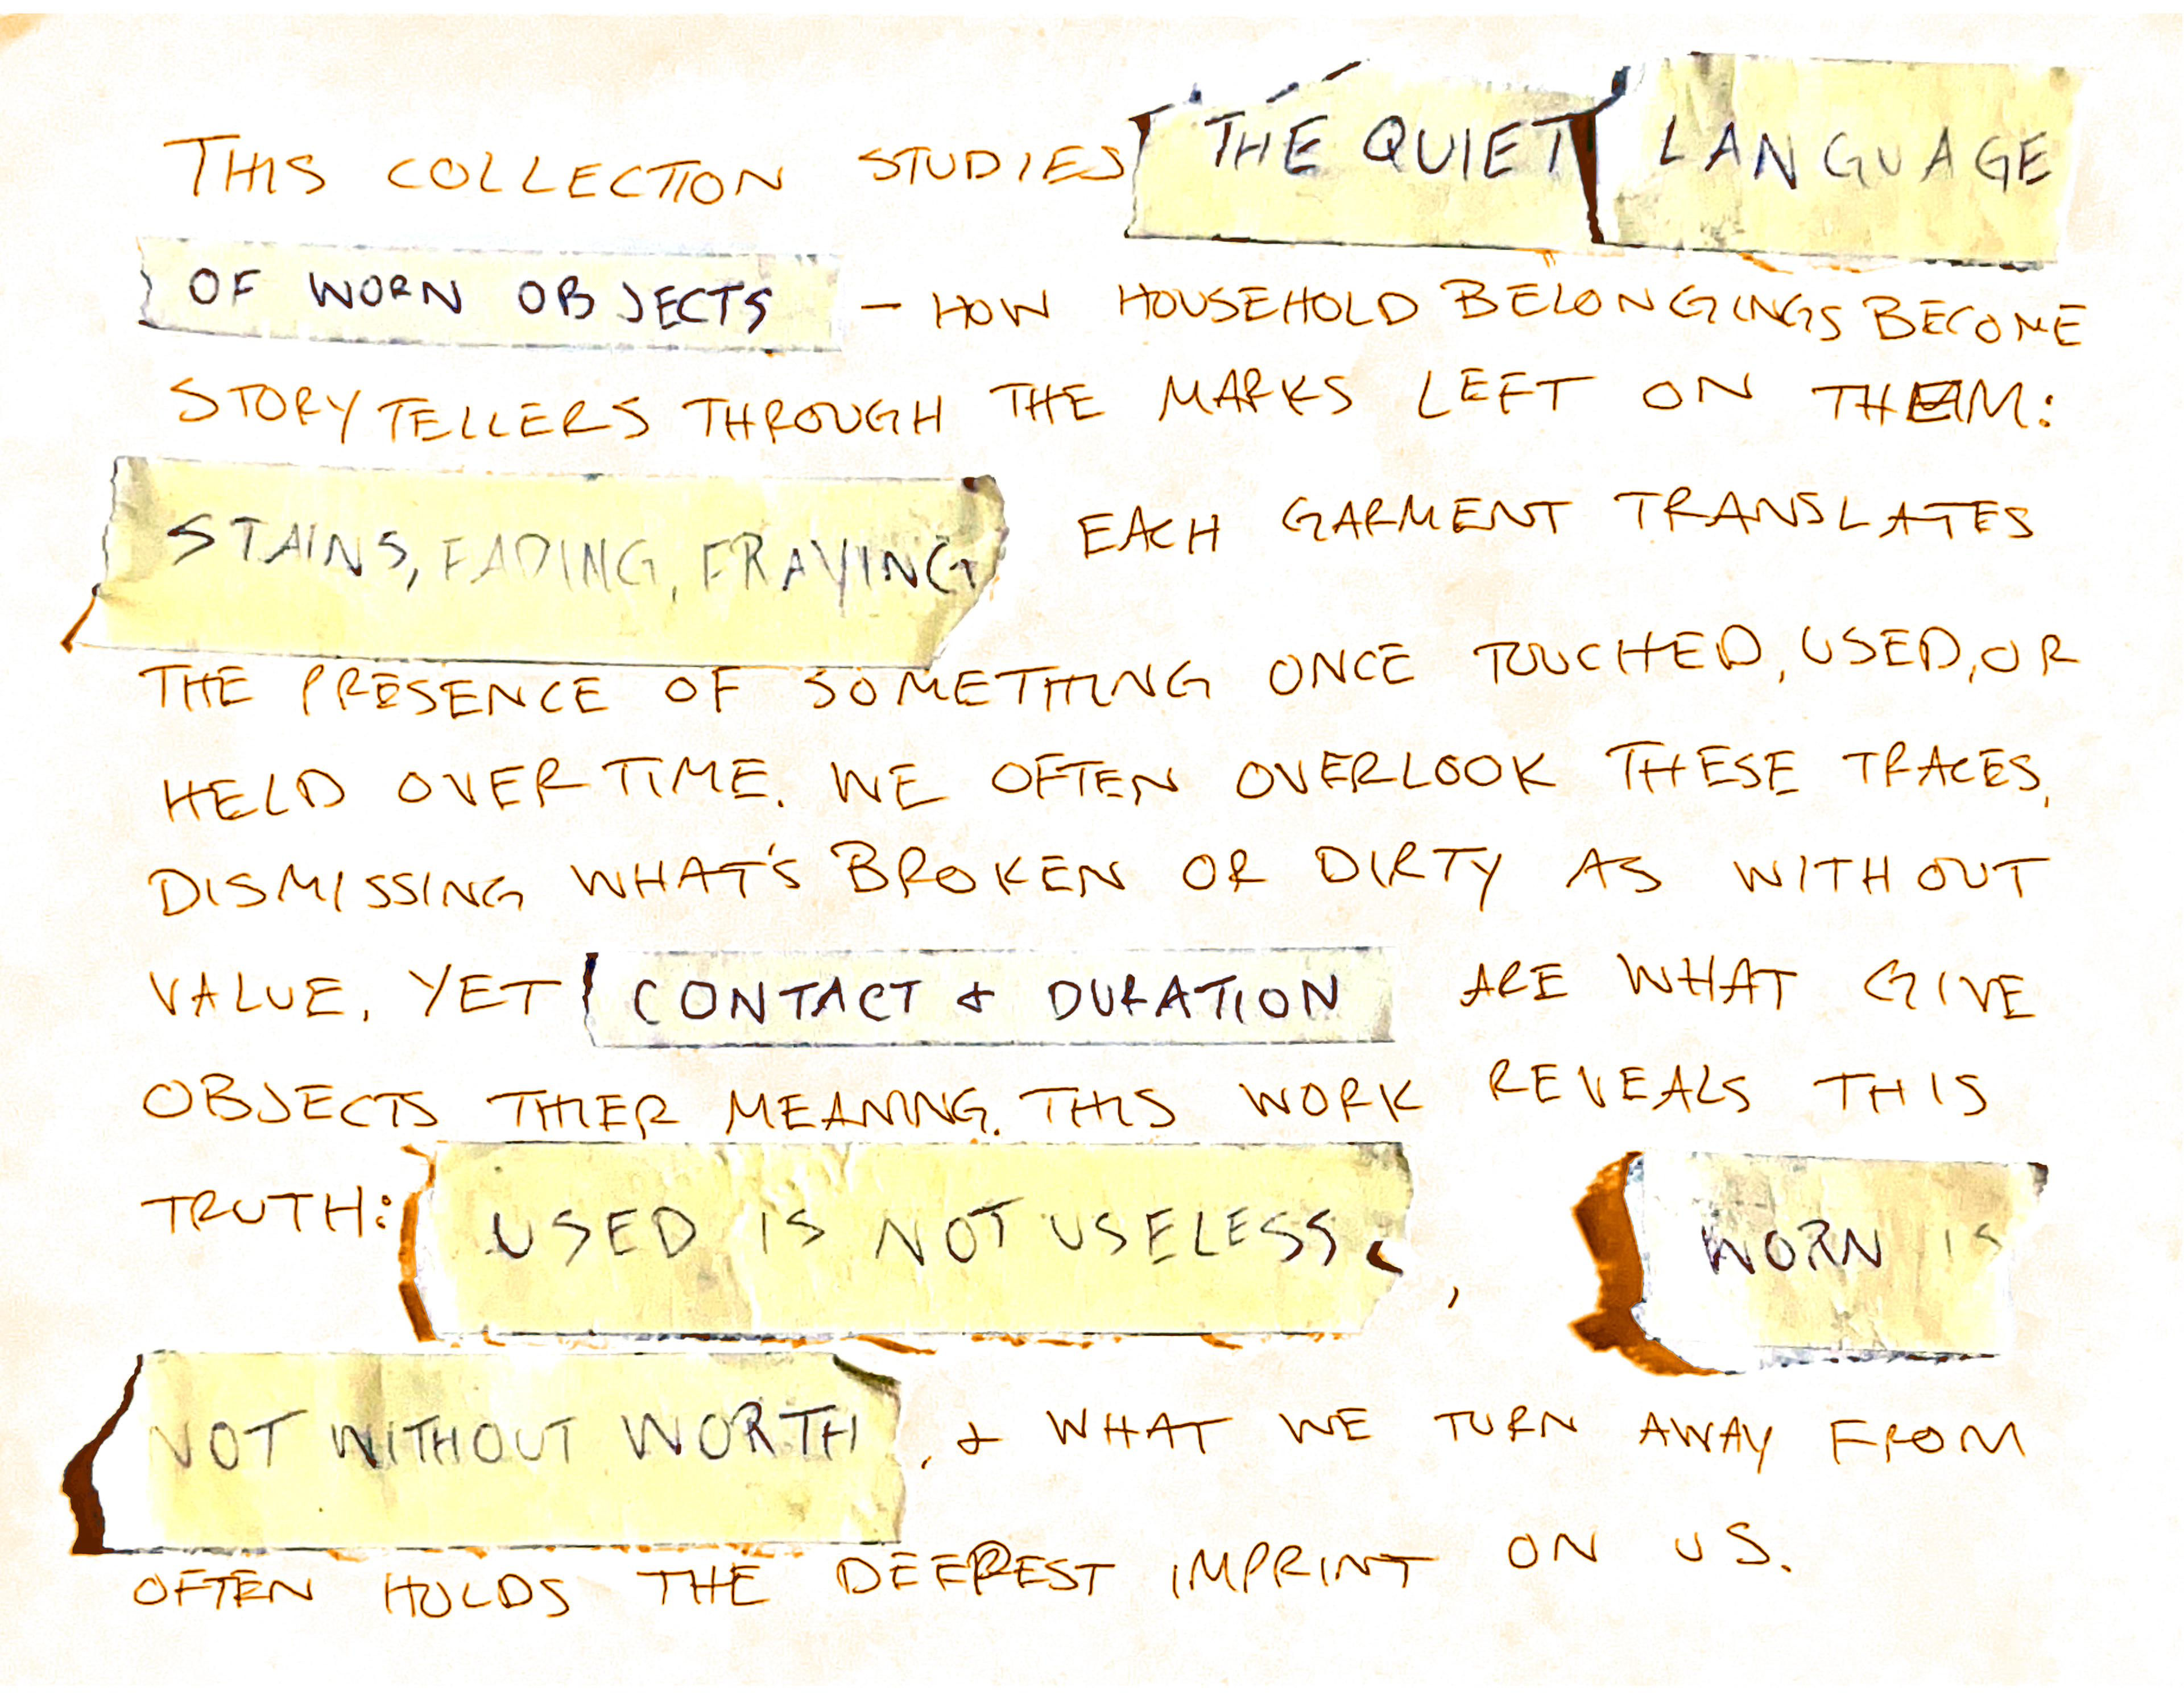 THIS COLLECTION STUDIES THE QUIET LANGUAGE
OF WORN OBJECTS – HOW HOUSEHOLD BELONGINGS BECOME
STORYTELLERS THROUGH THE MARKS LEFT ON THEM:
STAINS, FADING, FRAYING EACH GARMENT TRANSLATES
THE PRESENCE OF SOMETHING ONCE TOUCHED, USED, OR
HELD OVER TIME. WE OFTEN OVERLOOK THESE TRACES,
DISMISSING WHAT'S BROKEN OR DIRTY AS WITHOUT
VALUE, YET CONTACT & DURATION ARE WHAT GIVE
OBJECTS THIER MEANING. THIS WORK REVEALS THIS
TRUTH: USED IS NOT USELESS, WORN IS
NOT WITHOUT WORTH, & WHAT WE TURN AWAY FROM
OFTEN HOLDS THE DEEPEST IMPRINT ON US.